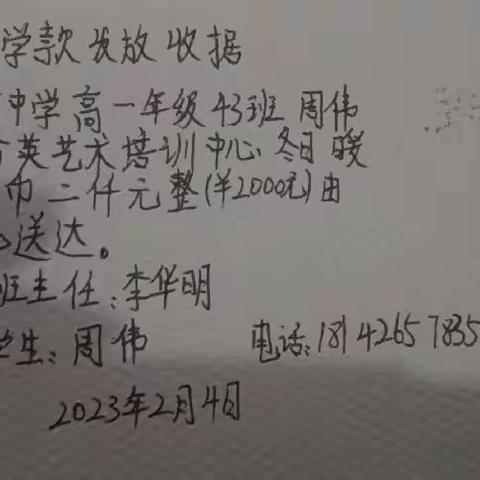 学款发放收据
中学高一年级43班 周伟
英艺术培训中心 冬日暖
币二仟元整(羊2000元)由
送达。
班主任:李华明
生:周伟 电话:181 4265 7835
2023年2月4日